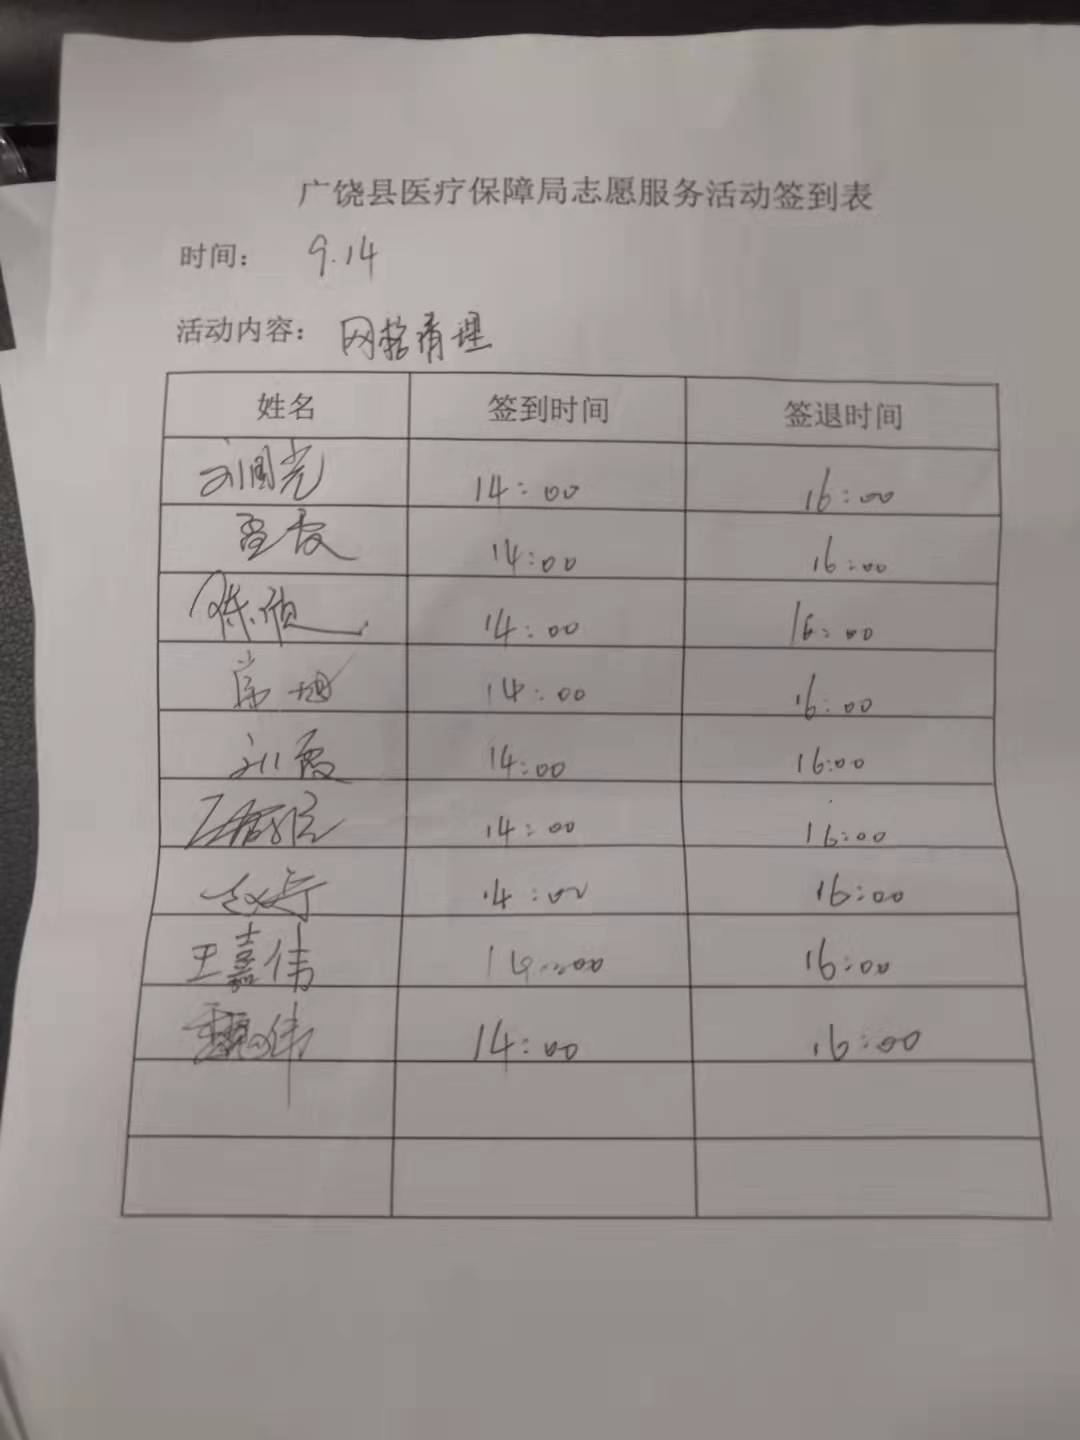 广饶县医疗保障局志愿服务活动签到表
时间： 9.14
活动内容： 网格清理
姓名 签到时间 签退时间
刘国光 14:00 16:00
14:00 16:00
14:00 16:00
14:00 16:00
刘霞 14:00 16:00
14:00 16:00
14:00 16:00
王嘉伟 14:00 16:00
14:00 16:00